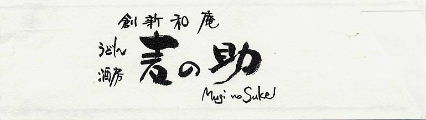 創新和庵
うどん
酒房
麦の助
Mugi no Suke